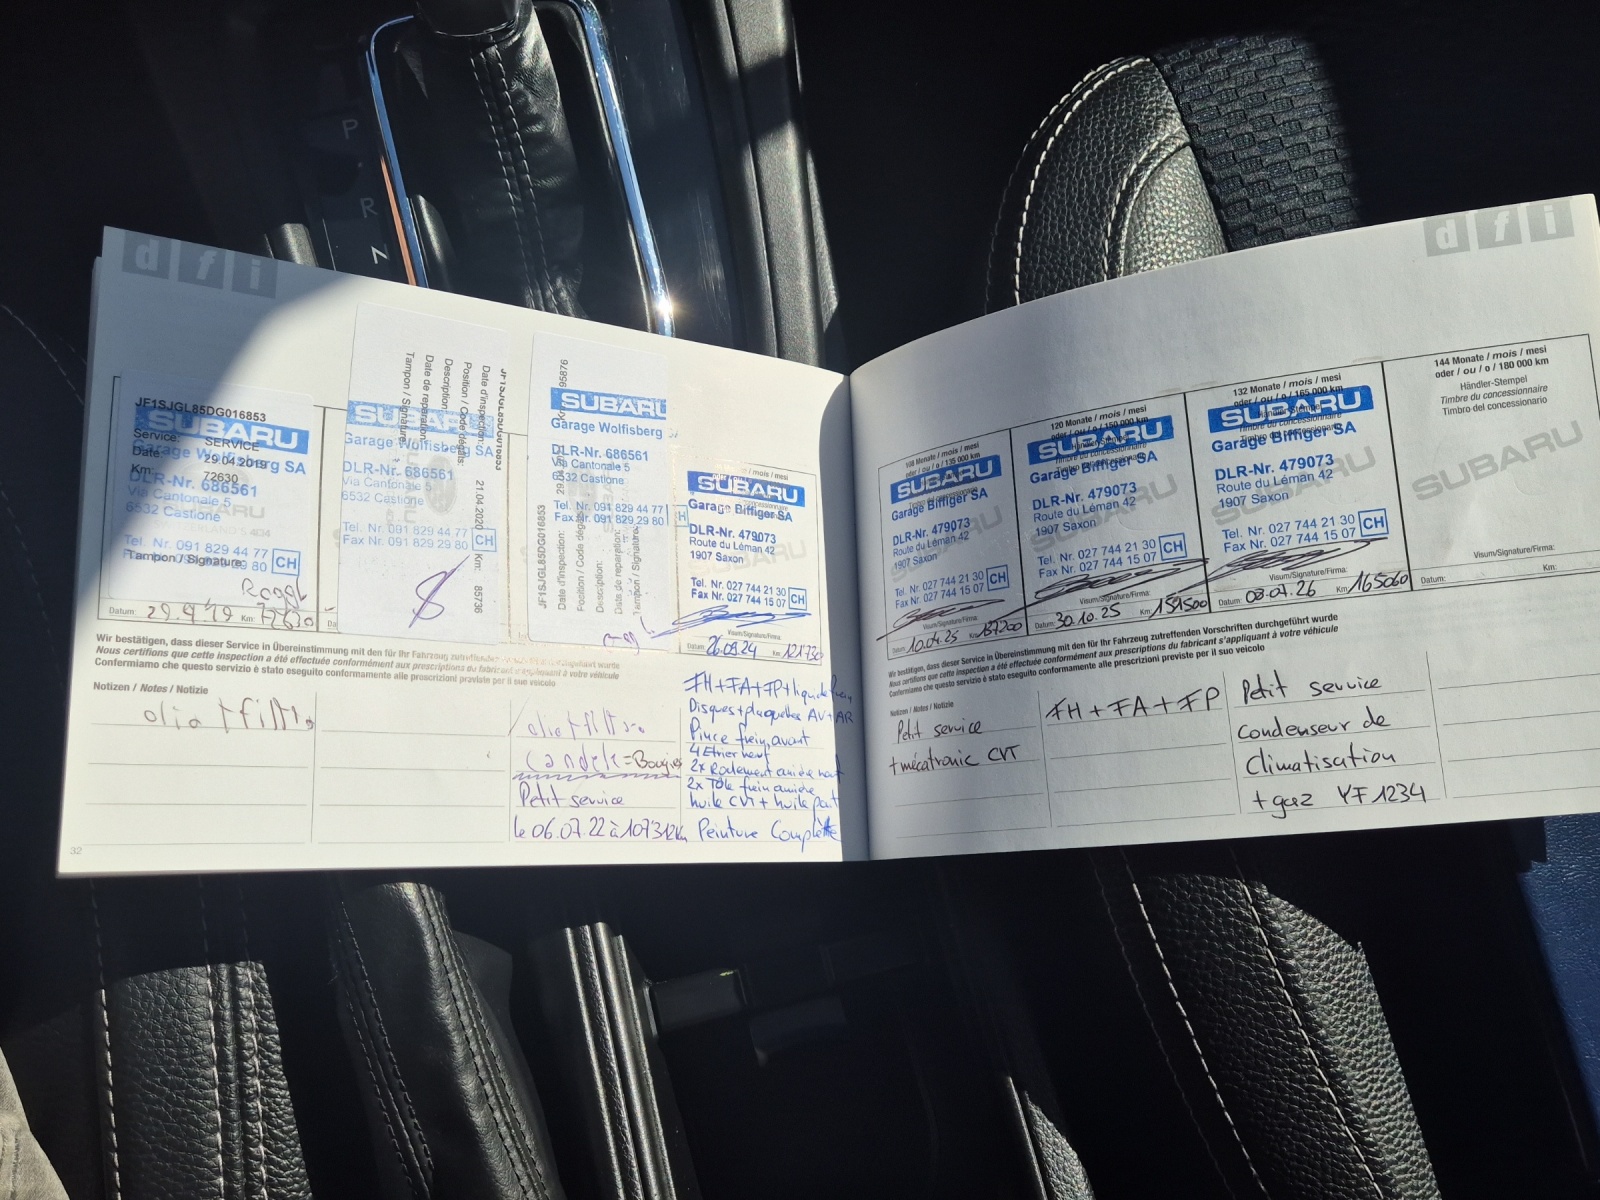 P
R
N
dfi
JF1SJGL85DG016853
SUBARU
Service: SERVICE
Garage Wolfisberg SA
Date: 29.04.2019
Km: 72630
DLR-Nr. 686561
Via Cantonale 5
6532 Castione
Tel. Nr. 091 829 44 77 CH
Tampon / Signature:
Datum: 29.4.19 Km: 72630
JF1SJGL85DG016853
Date d'inspection: 21.04.2020 Km: 85736
Position / Code dégâts:
Description:
Date de reparation:
Tampon / Signature:
SUBARU
Garage Wolfisberg SA
DLR-Nr. 686561
Via Cantonale 5
6532 Castione
Tel. Nr. 091 829 44 77
Fax Nr. 091 829 29 80 CH
JF1SJGL85DG016853
Date d'inspection: 95876
Position / Code dégâts:
Description:
Date de reparation:
Tampon / Signature:
SUBARU
Garage Wolfisberg
DLR-Nr. 686561
Via Cantonale 5
6532 Castione
Tel. Nr. 091 829 44 77
Fax Nr. 091 829 29 80 CH
/ mois / mesi
SUBARU
Garage Biffiger SA
DLR-Nr. 479073
Route du Léman 42
1907 Saxon
Tel. Nr. 027 744 21 30
Fax Nr. 027 744 15 07 CH
Visum/Signature/Firma:
26.09.24 Km: 121730
Wir bestätigen, dass dieser Service in Übereinstimmung mit den für Ihr Fahrzeug zutreffenden wurde
Nous certifions que cette inspection a été effectuée conformément aux prescriptions du fabricant s'appliquant à votre véhicule
Confermiamo che questo servizio è stato eseguito conformamente alle prescrizioni previste per il suo veicolo
Notizen / Notes / Notizie
olio + filtro
olio + filtro
Candele = Bougies
Petit service
le 06.07.22 à 107312km
FH + FA + FP + liquide frein
Disques + plaquettes AV + AR
Pince frein avant
4 Etrier neuf
2x Roulement arrière neuf
2x Tôle frein arrière
huile CVT + huile pont
Peinture Complète
32
dfi
108 Monate / mois / mesi
oder / ou / o / 135 000 km
SUBARU
Garage Biffiger SA
DLR-Nr. 479073
Route du Léman 42
1907 Saxon
Tel. Nr. 027 744 21 30
Fax Nr. 027 744 15 07 CH
Visum/Signature/Firma:
Datum: 10.04.25 Km: 137200
120 Monate / mois / mesi
oder / ou / o / 150 000 km
SUBARU
Garage Biffiger SA
DLR-Nr. 479073
Route du Léman 42
1907 Saxon
Tel. Nr. 027 744 21 30
Fax Nr. 027 744 15 07 CH
Visum/Signature/Firma:
Datum: 30.10.25 Km: 159500
132 Monate / mois / mesi
oder / ou / o / 165 000 km
SUBARU
Garage Biffiger SA
DLR-Nr. 479073
Route du Léman 42
1907 Saxon
Tel. Nr. 027 744 21 30
Fax Nr. 027 744 15 07 CH
Visum/Signature/Firma:
Datum: 03.07.26 Km: 165060
144 Monate / mois / mesi
oder / ou / o / 180 000 km
Händler-Stempel
Timbre du concessionaire
Timbro del concessionario
SUBARU
Visum/Signature/Firma:
Datum: Km:
Wir bestätigen, dass dieser Service in Übereinstimmung mit den für Ihr Fahrzeug zutreffenden Vorschriften durchgeführt wurde
Nous certifions que cette inspection a été effectuée conformément aux prescriptions du fabricant s'appliquant à votre véhicule
Confermiamo che questo servizio è stato eseguito conformamente alle prescrizioni previste per il suo veicolo
Notizen / Notes / Notizie
Petit service
+ mécatronic CVT
FH + FA + FP
Petit service
Condenseur de
Climatisation
+ gaz YF1234